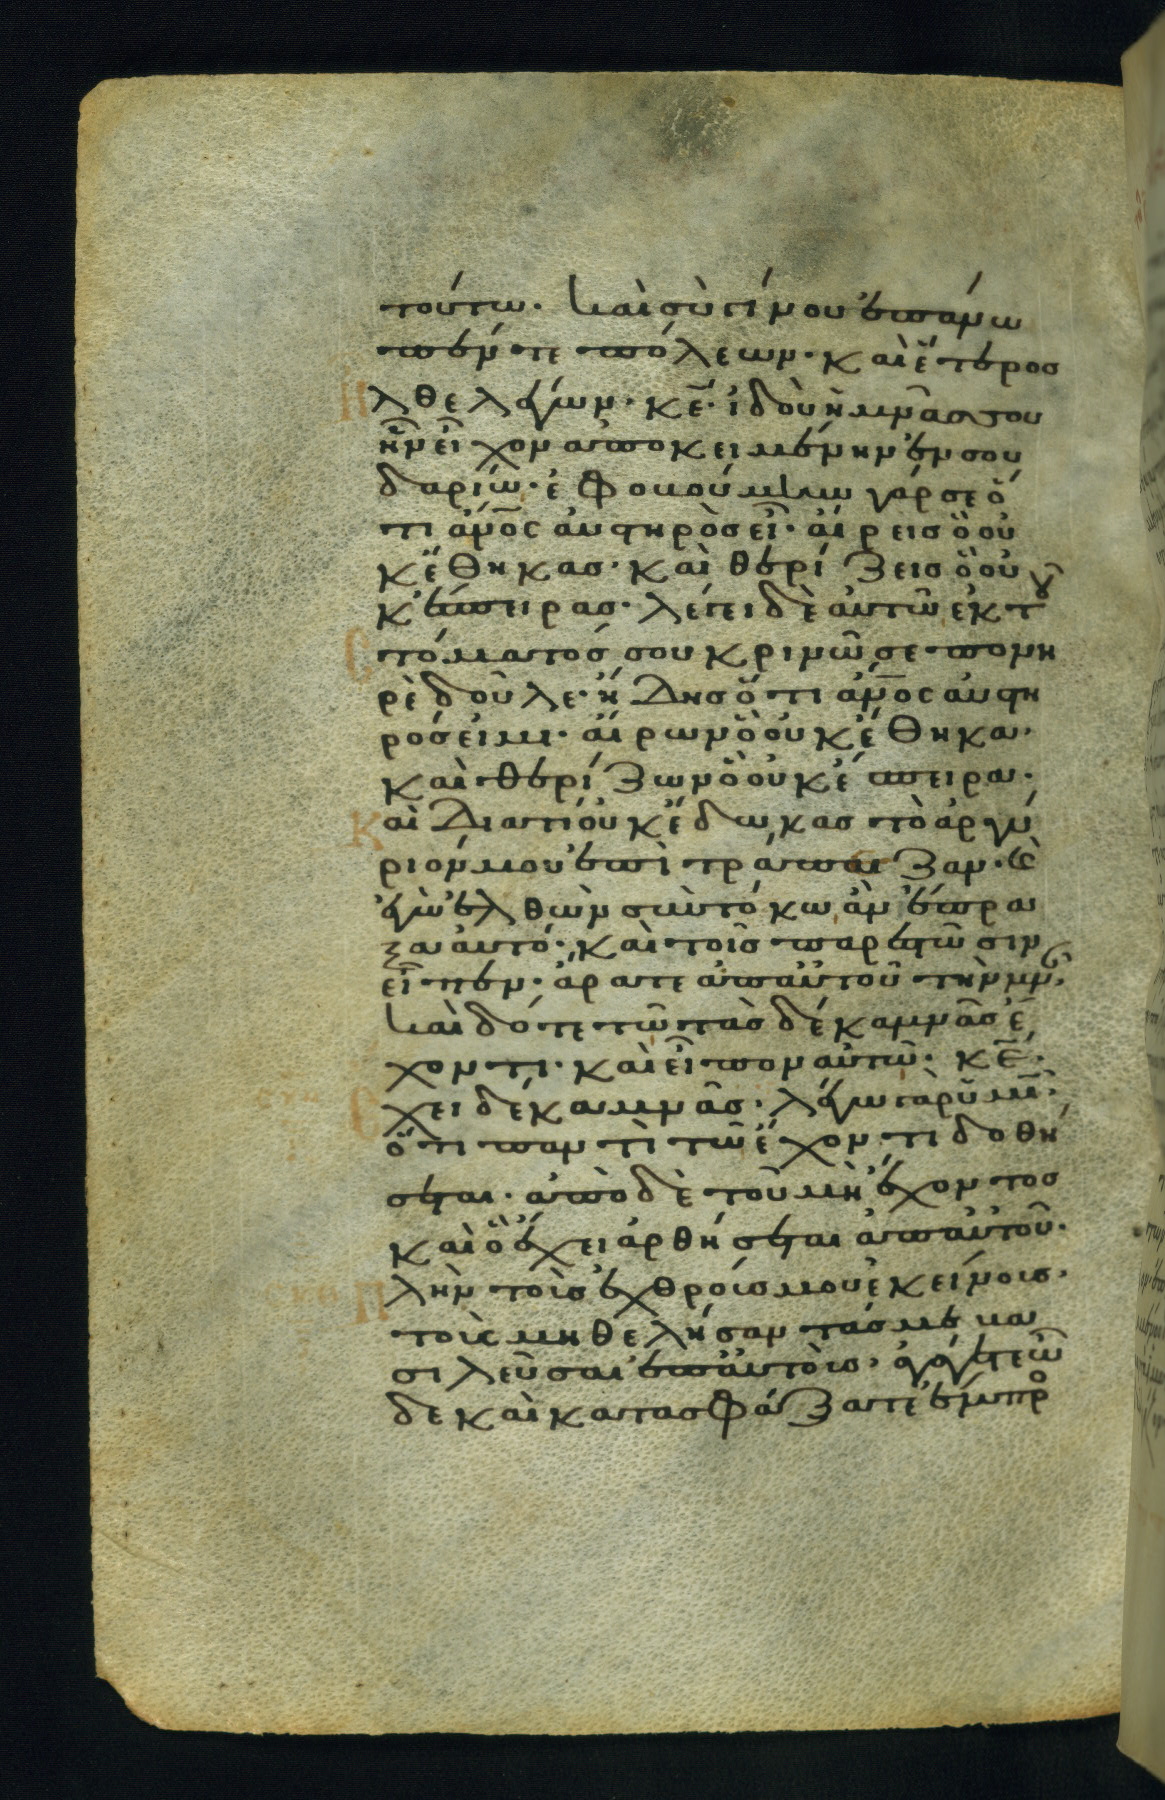 τούτω· καὶ σὺ γίνου ἐπάνω
πέντε πόλεων· καὶ ἕτερος
ἦλθε λέγων· κ̅ε̅· ἰδοὺ ἡ μνᾶ σου
ἣν εἶχον ἀποκειμένην ἐν σου
δαρίω· ἐφοβούμην γάρ σε ὅ
τι ἄν̅ο̅ς αὐστηρὸς εἶ· αἴρεις ὃ οὐ
κ ἔθηκας· καὶ θερίζεις ὃ οὐ
κ ἔσπειρας· λέγει δὲ αὐτῶ ἐκ τοῦ
στόματός σου κρινῶ σε πονη
ρὲ δοῦλε· ἤδης ὅτι ἄν̅ο̅ς αὐστη
ρός εἰμι· αἴρων ὃ οὐκ ἔθηκα·
καὶ θερίζων ὃ οὐκ ἔσπειρα·
Καὶ διατί οὐκ ἔδωκας τὸ ἀργύ
ριόν μου ἐπὶ τράπαιζαν· καὶ
ἐγὼ ἐλθὼν σὺν τόκω ἂν ἔπρα
ξα αὐτό· καὶ τοῖς παρεστῶσιν
εἶπεν· ἄρατε ἀπ' αὐτοῦ τὴν μνᾶν·
καὶ δότε τῶ τὰς δέκα μνᾶς ἔ
χοντι· καὶ εἶπον αὐτῶ· κ̅ε̅·
Ἔχει δέκα μνᾶς· λέγω γὰρ ὑμῖν·
ὅτι παντὶ τῶ ἔχοντι δοθή
σεται· ἀπὸ δὲ τοῦ μὴ ἔχοντος
καὶ ὃ ἔχει ἀρθήσεται ἀπ' αὐτοῦ·
Πλὴν τοὺς ἐχθρούς μου ἐκείνους·
τοὺς μὴ θελήσαντάς με βα
σιλεῦσαι ἐπ' αὐτοὺς· ἀγάγετε ὧ
δε καὶ κατασφάζατε ἔμπρο